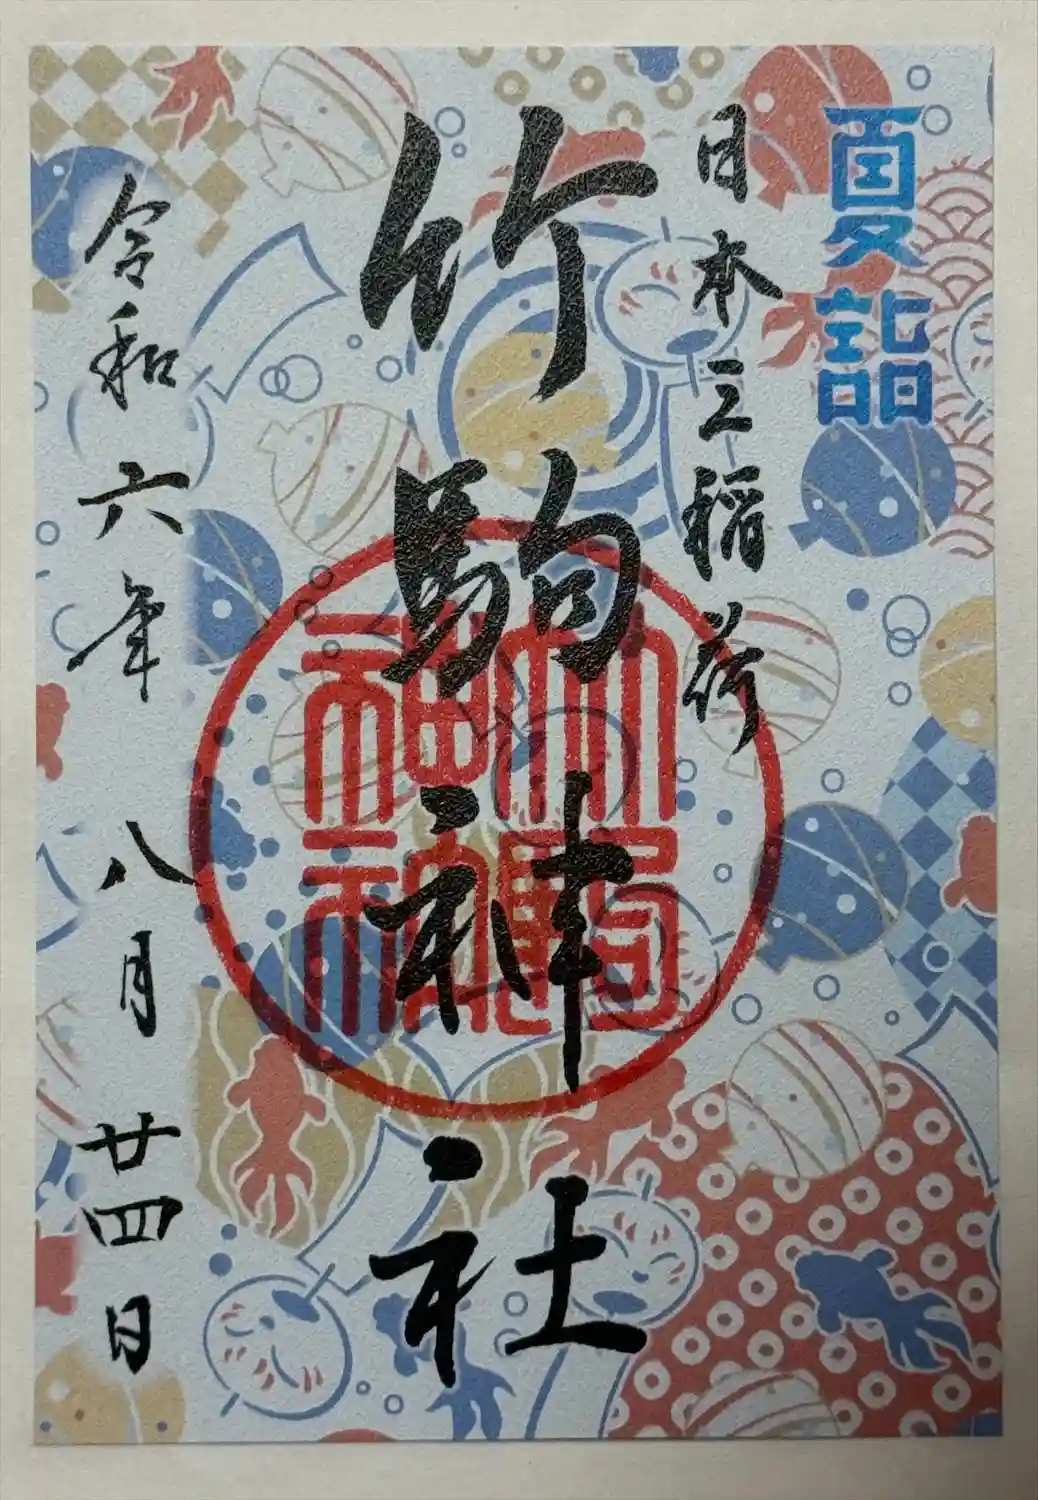 夏詣
日本三稲荷
竹駒神社
竹駒神社
令和六年八月廿四日